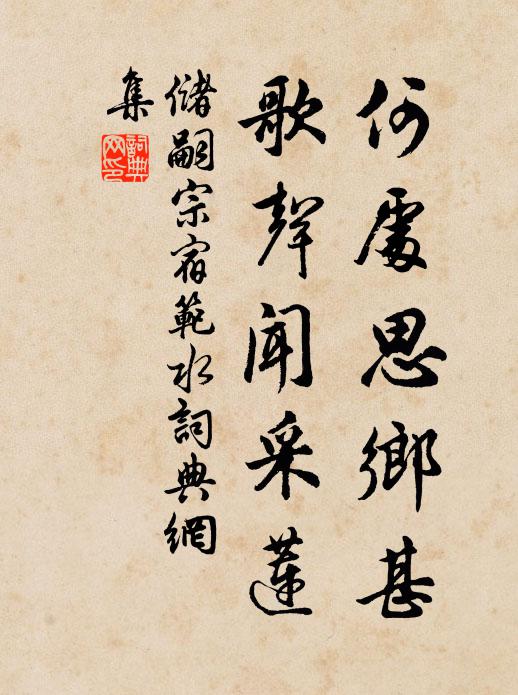 何處思鄉甚
歌聲聞采蓮
儲嗣宗宿範水詞典網
集
詞典網印